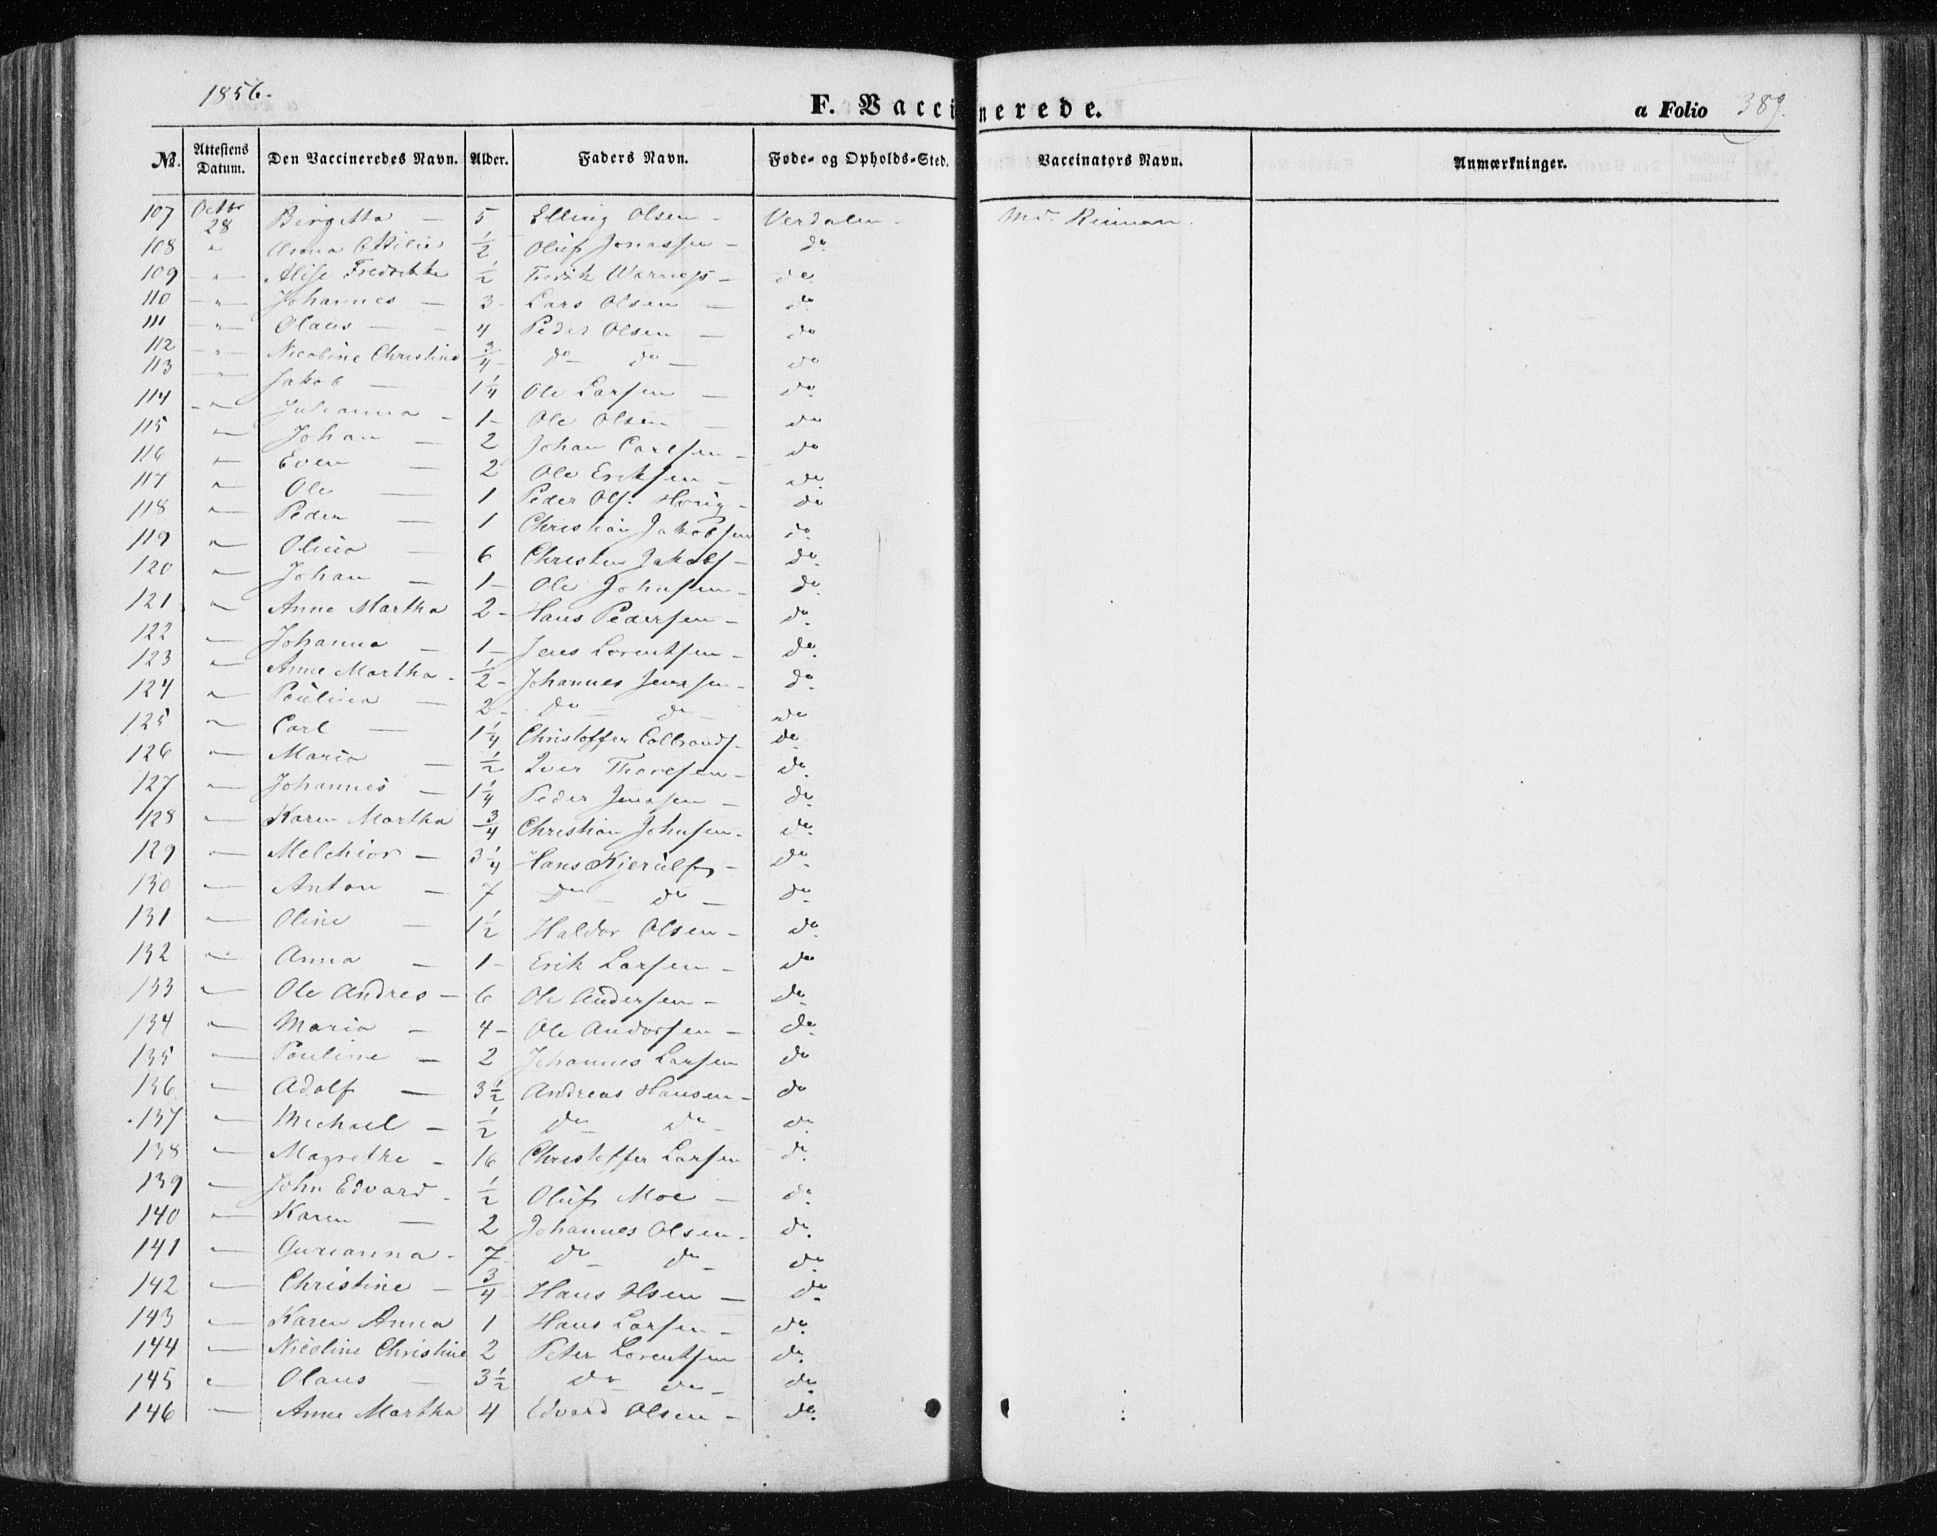 1856.
F. Vaccinerede.
a Folio 389.
No. Attestens Datum. Den Vaccineredes Navn. Alder. Faders Navn. Føde- og Opholds-Sted. Vaccinators Navn. Anmærkninger.
107 Octbr 28 Birgitta — 5 Elling Olsen – Verdalen. Md.
108 " Anna 1/2 Oluf Jonassen – do
109 — " Alise Fredrikke 1/2 Fredrik – do
110 — " Johannes — 3 – Lars Olsen — do
111 — " Olaus — 4 Peder Olsen — do
112 — " Nicoline Christine 3/4 – do – do — do
113 — " Jakob — 1 1/4 Ole Larsen — do
114 — " Julianna – 1 – Ole Olsen — do
115 " Johan — 2 Johan Carlsen – do
116 " Even — 2 Ole Eriksen – do.
117 " Ole — 1 Peder Ols. – do
118 " Peder — 1 Christian Jakobsen do
119 " Olina — 6 Christen Jakobs – do.
120 " Johan — 1 – Ole Johnsen – do.
121 " Anne Martha 2 – Hans Pedersen – do.
122 " Johanna – 1 – Jens Lorentsen – do.
123 " Anne Martha – 1/2 – Johannes Jensen – do.
124 " Paulina — 2 – do — do – do
125 " Carl — 1 1/4 Christoffer do.
126 " Maria — 1/2 Iver Thoresen – do.
127 " Johannes — 1 1/4 Peder Jensen – do.
128 " Karen Martha 3/4 Christian Johnsen – do.
129 " Melchior — 3 1/4 Hans Kjerulf – do.
130 " Anton — 7 do – do – do.
131 " Oline — 1 1/2 Haldor Olsen – do.
132 " Anna — 1 – Erik Larsen – do
133 " Ole Andres – 6 Ole Andersen – do.
134 " Maria — 4 – Ole Andersen – do.
135 " Pauline — 2 Johannes Larsen do
136 " Adolf — 3 1/2 Andreas Hansen – do
137 " Michael – 1/2 do – do – do.
138 " Magrethe – 16 Christoffer Larsen do.
139 " John Edvard – 1/2 Oluf Moe — do.
140 " Karen — 2 Johannes Olsen – do.
141 " Gurianna – 7 do – do – do.
142 " Christine – 3/4 Hans Olsen — do.
143 " Karen Anna 1 Hans Larsen – do.
144 " Nicoline Christine 2 Peter Lorentsen do.
145 " Olaus — 3 1/2 do – do – do.
146 " Anne Martha 4 Edvard Olsen – do.